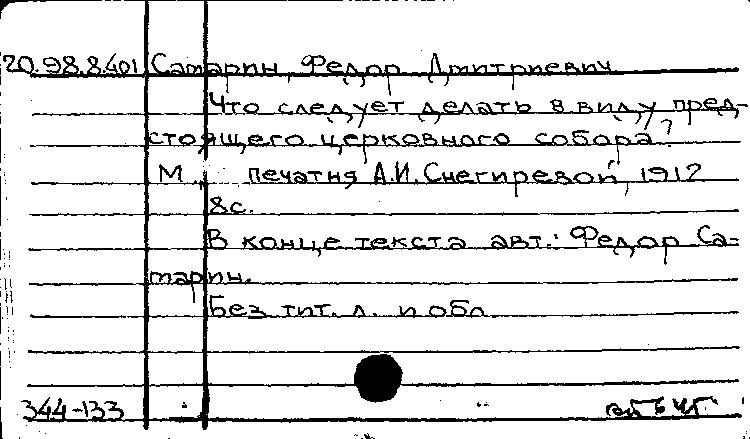 20.98.8.401 Самарин, Федор Дмитриевич
Что следует делать в виду пред-
стоящего церковного собора?
М., печатня А.И. Снегиревой, 1912
8с.
В конце текста авт.: Федор Са-
марин.
Без тит. л. и обл.
344-133